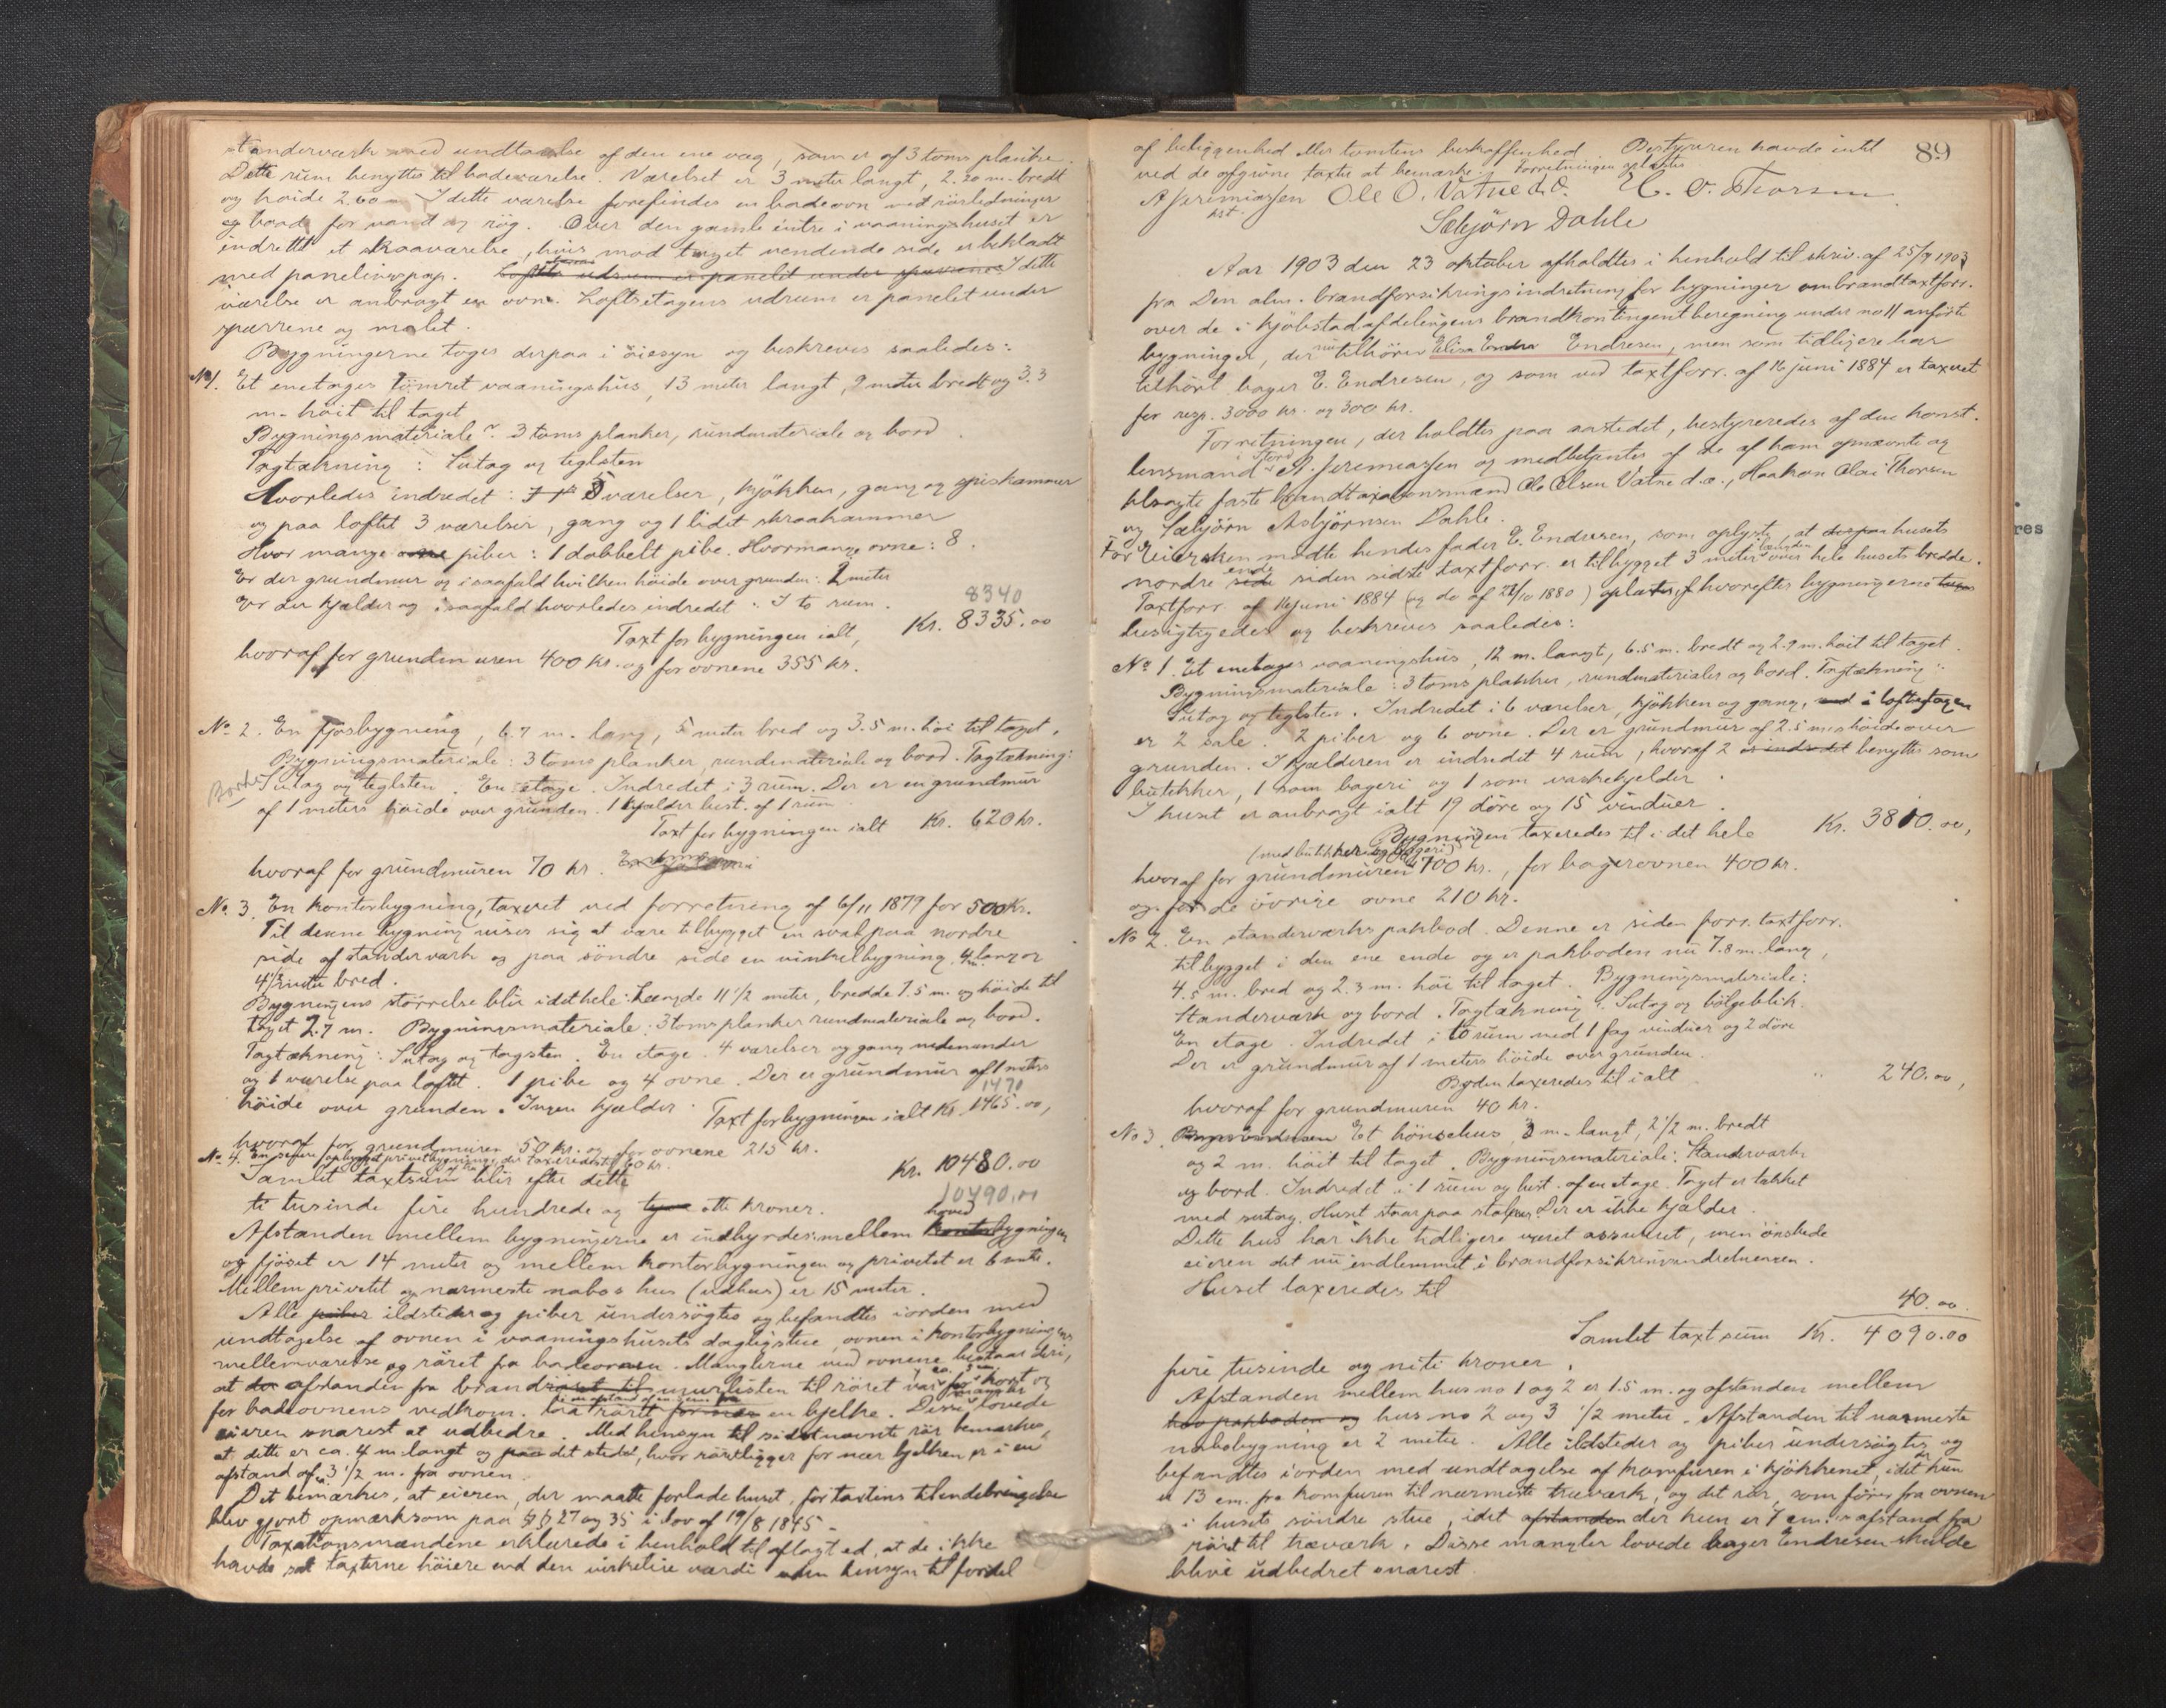 standerværk med undtagelse af den ene væg, som er af 3 toms planker.
Dette rum benyttes til badeværelse. Værelset er 3 meter langt, 2.20 m. bredt
og høide 2.60 m. I dette værelse forefindes en badeovn med rørledninger
og baade for vand og røg. Over den gamle entre i vaaningshuset er
indrettet et skraaværelse, hvis mod taget vendende side er beklædt
med panelingspap. I dette
værelse er anbragt en ovn. Loftsetagens udrum er panelet under
sparrene og malet.
Bygningerne toges derpaa i öiesyn og beskreves saaledes:
No 1. Et enetages tömret vaaningshus, 13 meter langt, 9 meter bredt og 3.3
m. höit til taget
Bygningsmateriale: 3 toms planker, rundmateriale og bord.
Tagtækning: Sutag og teglsten
Hvorledes indredet: 5 værelser, kjökken, gang og spiskammer
og paa loftet 3 værelser, gang og 1 lidet skraakammer
Hvor mange piber: 1 dobbelt pibe. Hvormange ovne: 8.
Er der grundmur og isaafald hvilken höide over grunden: 2 meter
Er der kjælder og isaafald hvorledes indredet: I to rum.
8340
Taxt for bygningen ialt, Kr. 8335.00
hvoraf for grundmuren 400 kr. og for ovnene 355 kr.
No. 2. En fjösbygning, 6.7 m. lang, 5 meter bred og 3.5 m. höi til taget.
Bygningsmateriale: 3 toms planker, rundmateriale og bord. Tagtækning:
Sutag og teglsten. En etage. Indredet i 3 rum. Der er en grundmur
af 1 meters höide over grunden. 1 kjælder best. af 1 rum
Taxt for bygningen ialt Kr. 620 kr.
hvoraf for grundmuren 70 kr.
No. 3. En kontorbygning, taxeret ved forretning af 6/11 1879 for 500 Kr.
Til denne bygning viser sig at være tilbygget en sval paa nordre
side af standerværk og paa söndre side en vinkelbygning, 4 m. lang og
4 1/2 meter bred.
Bygningens störrelse blir idethele: Længde 11 1/2 meter, bredde 7.5 m. og höide til
taget 2.7 m. Bygningsmateriale: 3 toms planker rundmateriale og bord.
Tagtækning: Sutag og tagsten. En etage. 4 værelser og gang nedenunder
og 1 værelse paa loftet. 1 pibe og 4 ovne. Der er grundmur af 1 meters
1470
höide over grunden. Ingen kjælder. Taxt for bygningen ialt Kr. 1465.00,
hvoraf for grundmuren 50 kr. og for ovnene 215 kr.
No. 4. En senere opbygget privetbygning, der taxeredes til 60 kr.
Samlet taxtsum blir efter dette Kr. 10480.00
10490.00
ti tusinde fire hundrede og otti kroner.
Afstanden mellem bygningerne er indbyrdes: mellem hovedbygningen
og fjöset er 14 meter og mellem kontorbygningen og privetet er 6 meter.
Mellem privetet og nærmeste nabos hus (udhus) er 15 meter.
Alle ildsteder og piber undersögtes og befandtes iorden med
undtagelse af ovnen i vaaningshusets dagligstue, ovnen i kontorbygningens
mellemværelse og röret fra badeovnen. Manglerne ved ovnene bestaar deri,
at afstanden fra brandmurlisten til röret var for kort og
for badeovnens vedkom. en bjelke. Disse mangler lovede
eieren snarest at udbedre. Med hensyn til sidstnævnte rör bemærkes,
at dette er ca. 4 m. langt og det sted, hvor röret ligger for nær bjelken er i en
afstand af 3 1/2 m. fra ovnen.
Det bemærkes, at eieren, der maatte forlade huset, för taxtens tilendebringelse
blev gjort opmærksom paa §§ 27 og 35 i lov af 19/8 1845.
Taxationsmændene erklærede i henhold til aflagt ed, at de ikke
havde sat taxterne höiere end den virkelige værdi uden hensyn til fordel
89
af beliggenhed eller tomtens beskaffenhed. Bestyreren havde intet
ved de afgivne taxter at bemærke. Forretningen oplæstes.
A Jeremiassen Ole O. Vatne d.æ. H. O. Thorsen.
kst.
Sæbjörn Dahle
Aar 1903 den 23 oktober afholdtes i henhold til skriv. af 25/9 1903
fra Den alm. brandforsikringsindretning for bygninger ombrandtaxtforr.
over de i Kjöbstadafdelingens brandkontingentberegning under no 11 anförte
bygninger, der nu tilhörer Elisa Endresen, men som tidligere har
tilhört bager E. Endresen, og som ved taxtforr. af 16 juni 1884 er taxeret
for resp. 3000 kr. og 300 kr.
Forretningen, der holdtes paa aastedet, bestyreredes af den konst.
lensmand i Stord A. Jeremiassen og medbetjentes af de af ham opnævnte og
elsagte faste brandtaxationsmænd Ole Olsen Vatne d.æ., Haakon Olai Thorsen
og Sæbjörn Asbjörnsen Dahle.
For eiersken mödte hendes fader E. Endresen, som oplyste, at husets
nordre ende siden sidste taxtforr. er tilbygget 3 meter i længden over hele husets bredde.
Taxtforr. af 16 juni 1884 (og do af 28/10 1880) oplæstes, hvorefter bygningerne
besigtigedes og beskreves saaledes:
No 1. Et enetages vaaningshus, 12 m. langt, 6.5 m. bredt og 2.9 m. höit til taget.
Bygningsmateriale: 3 toms planker, rundmaterialer og bord. Tagtækning:
Sutag og teglsten. Indredet i 6 værelser, kjökken og gang, i loftsetagen
er 2 sale. 2 piber og 6 ovne. Der er grundmur af 2.5 m. höide over
grunden. I kjælderen er indredet 4 rum, hvoraf 2 benyttes som
butikker, 1 som bageri og 1 som vaskekjelder.
I huset er anbragt ialt 19 döre og 15 vinduer.
Bygningen taxeredes til i det hele Kr. 3810.00,
(med butikker og bageri)
hvoraf for grundmuren 700 kr., for bagerovnen 400 kr.
og for de övrige ovne 210 kr.
No 2. En standerværks pakbod. Denne er siden forr. taxtforr.
tilbygget i den ene ende og er pakboden nu 7.8 m. lang,
4.5 m. bred og 2.3 m. höi til taget. Bygningsmateriale:
Standerværk og bord. Tagtækning: Sutag og bölgeblik.
En etage. Indredet i to rum med 1 fag vinduer og 2 döre
Der er grundmur af 1 meters höide over grunden.
Boden taxeredes til ialt " 240.00,
hvoraf for grundmuren 40 kr.
No 3. Et hönsehus, 3 m. langt, 2 1/2 m. bredt
og 2 m. höit til taget. Bygningsmateriale: Standerværk
og bord. Indredet i 1 rum og best. af en etage. Taget er tækket
med sutag. Huset staar paa stolper. Der er ikke kjælder.
Dette hus har ikke tidligere været assureret, men önskede
eieren det nu indlemmet i brandforsikringsindretningen.
Huset taxeredes til 40.00.
Samlet taxtsum Kr. 4090.00
fire tusinde og niti kroner.
Afstanden mellem hus no 1 og 2 er 1.5 m. og afstanden mellem
hus no 2 og 3 1/2 meter. Afstanden til nærmeste
nabobygning er 2 meter. Alle ildsteder og piber undersögtes og
befandtes iorden med undtagelse af komfuren i kjökkenet, idet kun
er 13 cm. fra komfuren til nærmeste træværk, og det rör, som förer fra ovnen
i husets söndre stue, idet der kun er 7 cm. afstand fra
röret til træværk. Disse mangler lovede bager Endresen skulde
blive udbedret snarest.